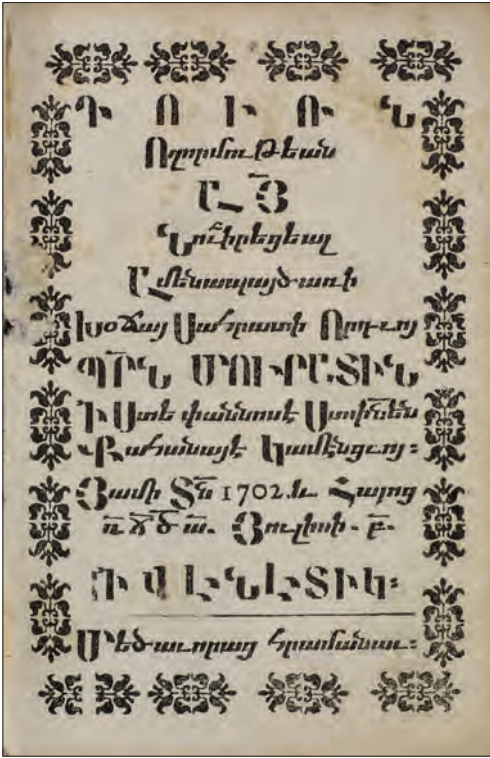 Դ Ո Ւ Ռ Ն
Ողորմութեան
Ա՟Յ
Նուիրեցեալ
Ամենապայծառի
Խօճայ Սահրատի Որդւոյ
ՊՐ՟Ն ՄՈՒՐԱՏԻՆ
Ի Ստե փաննոսէ
Քահանայէ Կամէնցւոյ։
Յամի Տ՟ն 1702. և Հայոց
ռ ճ ծ ա. Յուլիսի. բ.
Ի Վ ԷՆԷՏԻԿ։
Մեծաւորաց Հրամանաւ։